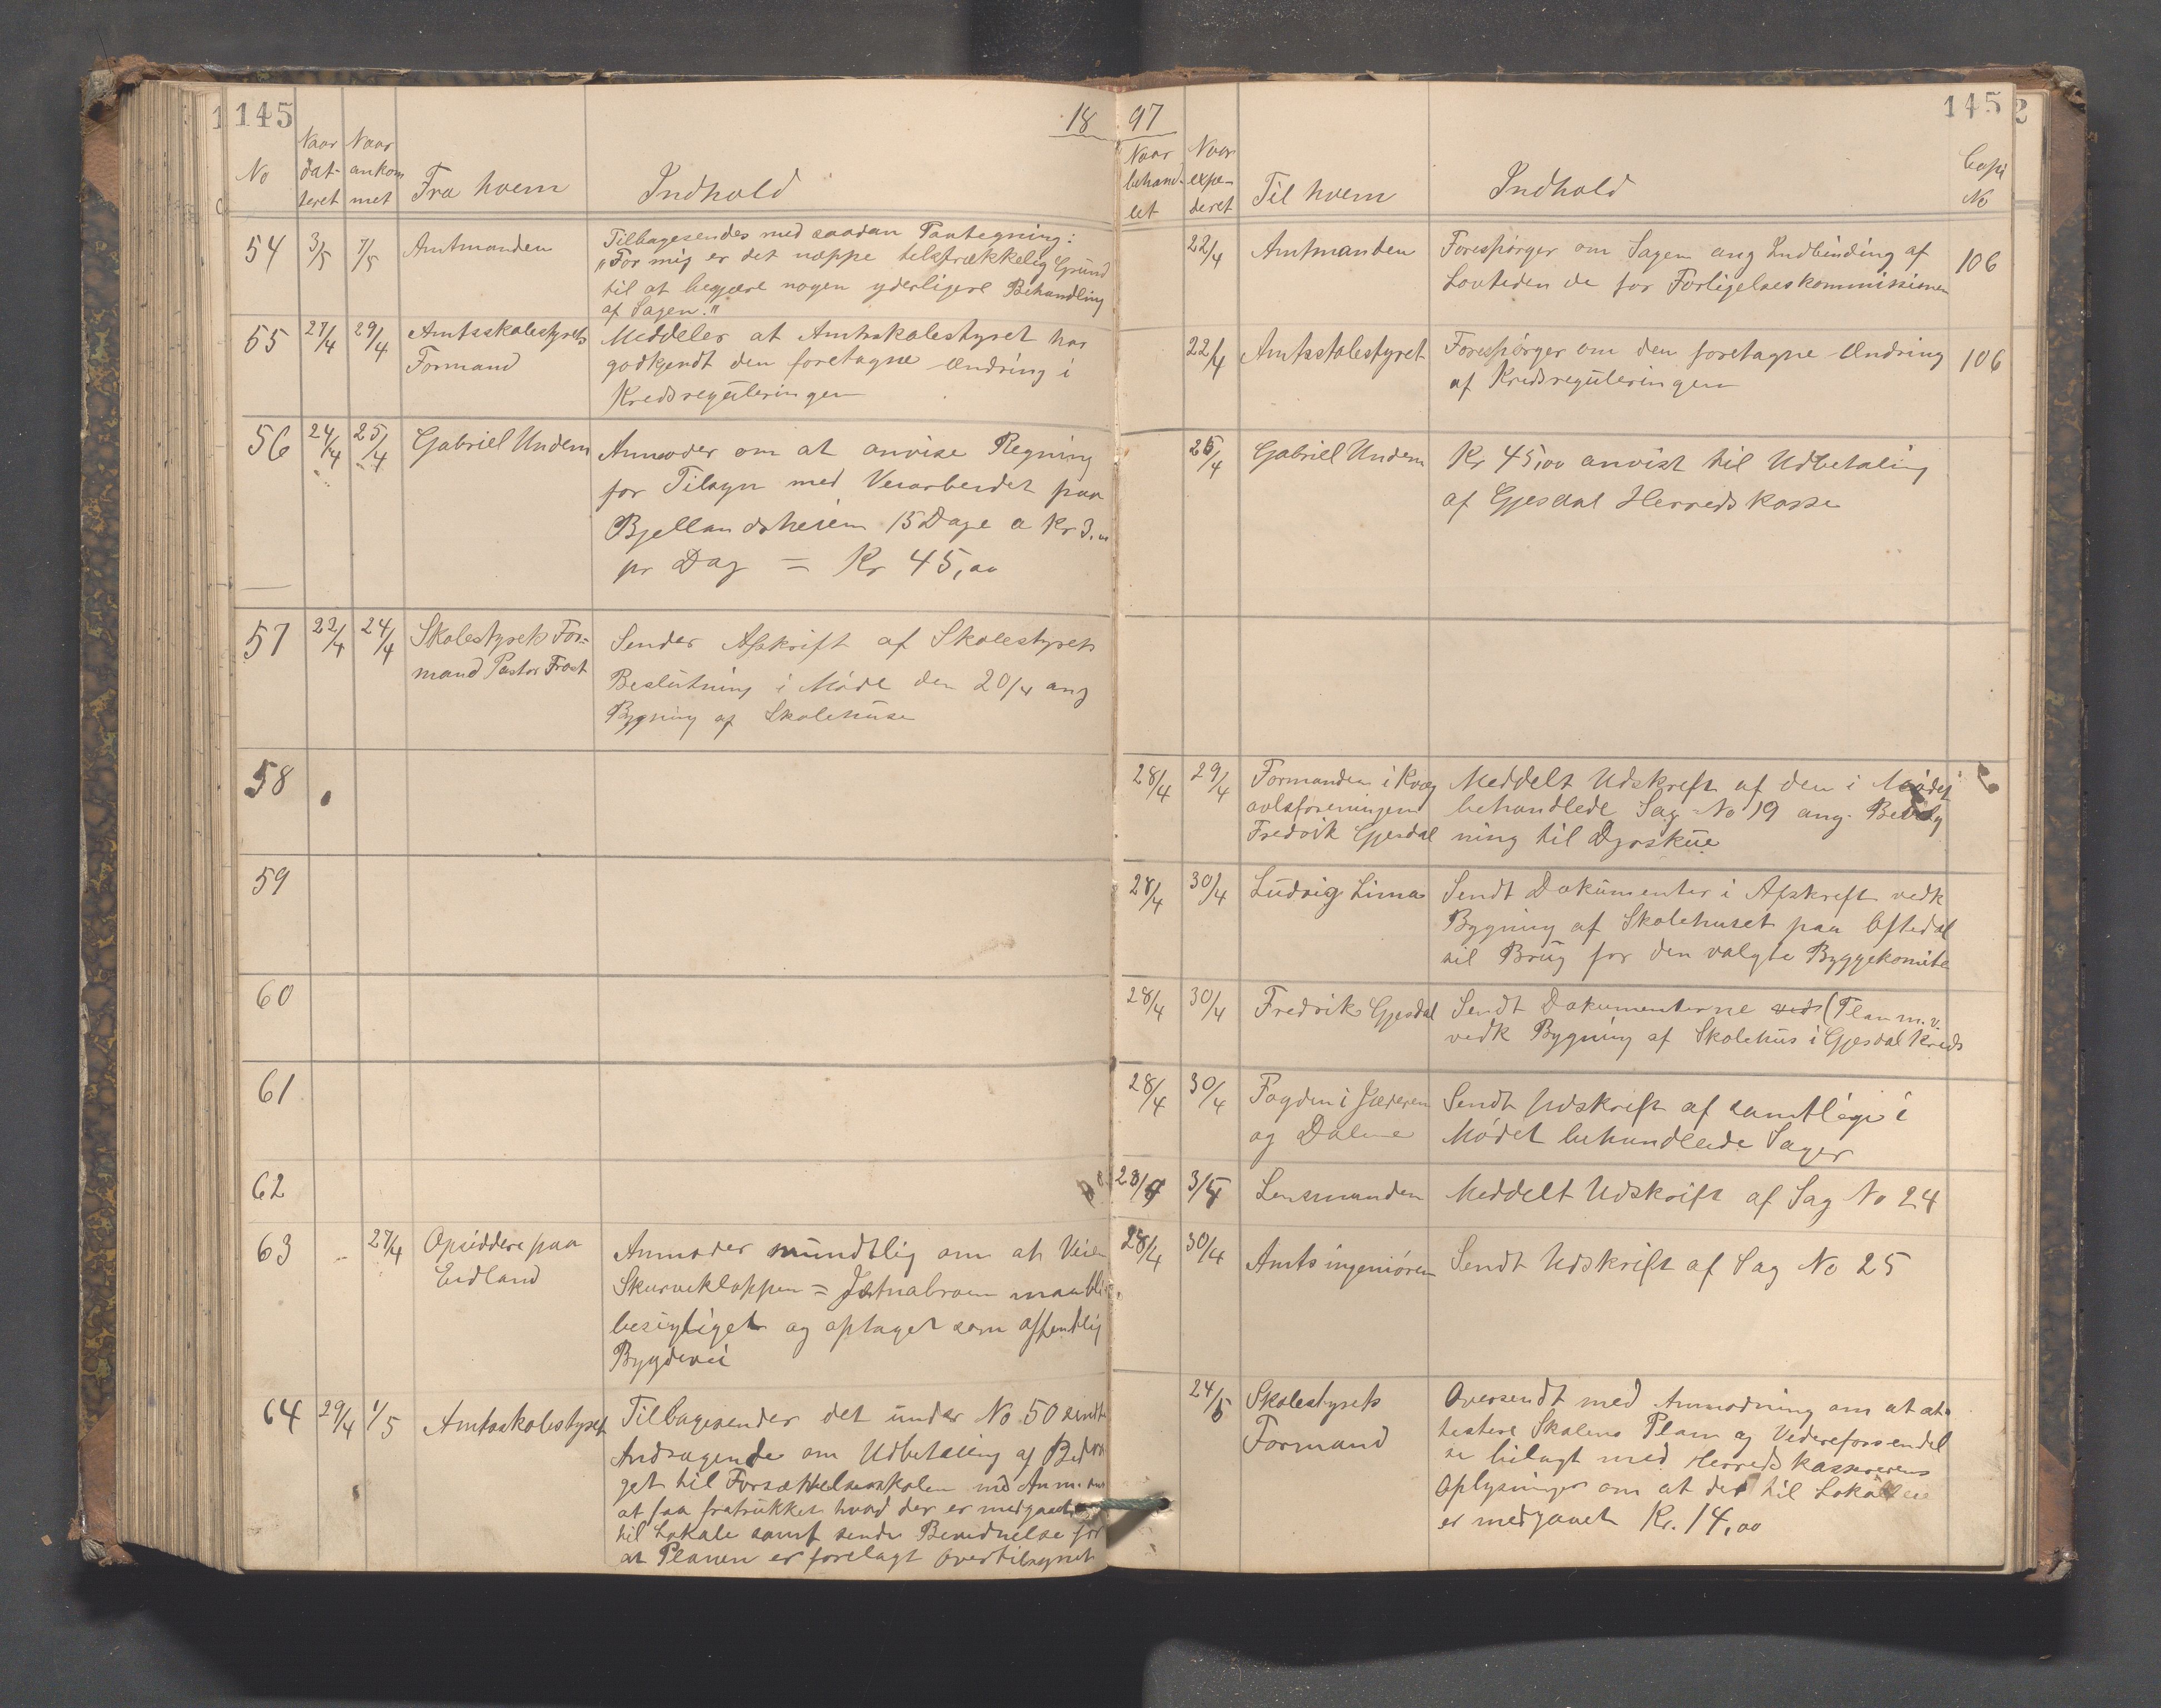 145
18
No
Naar dat- teret
Naar ankom met
Fra hvem
Indhold
54 3/5 7/5 Amtmanden
Tilbagesendes med saadan Paategning:
"For mig er det neppe tilstrækkelig Grund
til at begjære nogen yderligere Behandling
af Sagen."
55 27/4 29/4 Amtsskolestyrets
Formand
Meddeler at Amtsskolestyret har
godkjendt den foretagne Ændring i
Kredsreguleringen
56 24/4 25/4 Gabriel Undem
Anmoder om at anvise Regning
for Tilsyn med Veiarbeidet paa
Bjellandsheien 15 Dage a Kr 3.00
pr Dag = Kr 45,00
57 22/4 24/4 Skolestyrets For=
mand Pastor Frost
Sender Afskrift af Skolestyrets
Beslutning i Møde den 20/4 ang
Bygning af Skolehuse
58
59
60
61
62
63 27/4 Opsiddere paa
Eidland
Anmoder mundtlig om at Veien
Skurvekloppen = maa bli
besigtiget og optaget som offentlig
Bygdevei
64 29/4 1/5 Amtsskolestyret
Tilbagesender det under No 50 sendte
Andragende om Udbetaling af Bidra
get til Forsættelsesskolen med Anm. om
at faa fratrukket hvad der er medgaaet
til Lokale samt sende Bevidnelse for
at Planen er forelagt Overtilsynet
97
145
2
Naar behand- let
Naar expe- deret
Til hvem
Indhold
Copi No
22/4 Amtmanden
Forespørger om Sagen ang Indbinding af
Lovtidende for Forligelseskommissionen
106
22/4 Amtsskolestyret
Forespørger om den foretagne Ændring
af Kredsreguleringen
106
25/4 Gabriel Undem
Kr 45,00 anvist til Udbetaling
af Gjesdal Herredskasse
28/4 29/4 Formanden i Kvæg
avlsforeningen
Fredrik Gjesdal
Meddelt Udskrift af den i Mødet
behandlede Sag No 19 ang. Bevilg
ning til Dyrskue
28/4 30/4 Ludvig Lima
Sendt Dokumenter i Afskrift vedk
Bygning af Skolehuset paa Oftedal
til Brug for den valgte Byggekomite
28/4 30/4 Fredrik Gjesdal
Sendt Dokumenterne vedk (Plan m.v.
vedk Bygning af Skolehus i Gjesdal Kreds
28/4 30/4 Fogden i Jæderen
og Dalene
Sendt Udskrift af samtlige i
Mødet behandlede Sager
28/4 3/5 Lensmanden
Meddelt Udskrift af Sag No 24
28/4 30/4 Amtsingeniøren
Sendt Udskrift af Sag No 25
24/5 Skolestyrets
Formand
Oversendt med Anmodning om at at-
testere Skolens Plan og Videreforsendel
se bilagt med Herredskassererens
Oplysninger om at der til Lokale
er medgaaet Kr. 14,00